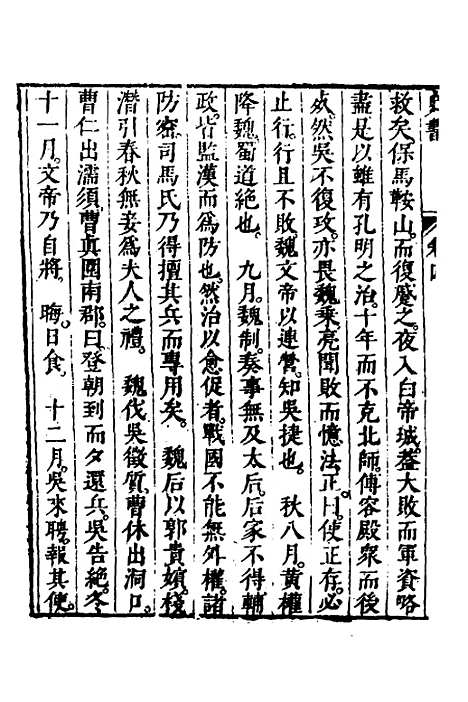 救矣保馬鞍山而復蹙之夜入白帝城蓋大敗而軍資略
盡是以雖有孔明之治十年而不克北師傅容殿衆而後
然吳不復攻亦畏魏乘亮聞敗而憶法正曰使正存必
止行行且不敗魏文帝以連營知吳捷也　秋八月黃權
降魏蜀道絶也　九月魏制奏事無及太后后家不得輔
政皆監漢而爲防也然治以愈促者戰國不能無外權諸
防密司馬氏乃得擅其兵而專用矣　魏后以郭貴嬪棧
潛引春秋無妾爲夫人之禮　魏伐吳徵質曹休出洞口
曹仁出濡須曹眞圍南郡曰登朝到而夕還兵吳告絶冬
十一月文帝乃自將　晦日食　十二月吳來聘報其使